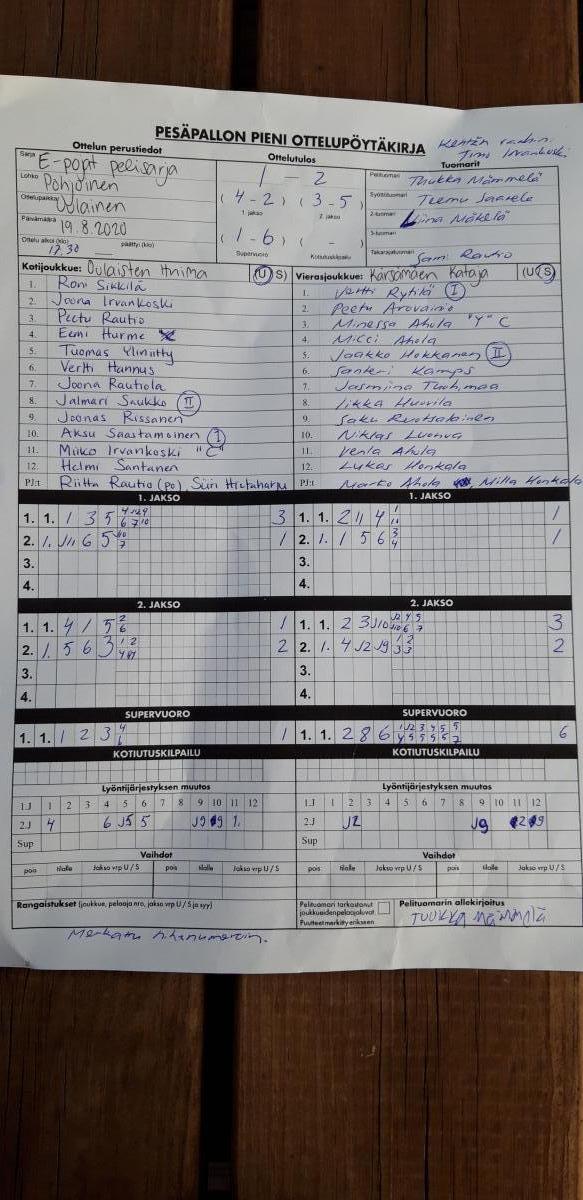 PESÄPALLON PIENI OTTELUPÖYTÄKIRJA
Ottelun perustiedot
Sarja E-pojat pelisarja
Lohko Pohjoinen
Ottelupaikka Oulainen
Päivämäärä 19.8.2020
Ottelu alkoi (klo) 17.30 päättyi (klo)
Ottelutulos
1 - 2
(4-2) (3-5)
1. jakso 2. jakso
(1-6) ( - )
Supervuoro Kotiutuskilpailu
Tuomarit
Pelituomari Tuukka Mämmelä
Syöttötuomari Teemu Jaarela
2-tuomari Liina Mäkelä
3-tuomari
Takarajatuomari Sami Rautio
Kotijoukkue: Oulaisten Huima (U S)
1. Roni Sikkilä
2. Joona Irvankoski
3. Peetu Rautio
4. Eemi Hurme
5. Tuomas Ylimitty
6. Vertti Hannus
7. Joona Rautiola
8. Jalmari Saukko II
9. Joonas Rissanen
10. Aksu Saastamoinen I
11. Miiko Irvankoski "C"
12. Helmi Santanen
PJ:t Riitta Rautio (po)
Vierasjoukkue: Kärsämäen Kataja (U S)
1. Vertti Rytikä I
2. Peetu Arovainio
3. Minessa Ahola "Y" C
4. Micci Ahola
5. Jaakko Hokkanen II
6. Santeri Kamps
7. Jasmina Tuohimaa
8. Iikka Huovila
9. Saku Ruotsalainen
10. Niklas Luonua
11. Venla Ahola
12. Lukas Honkala
PJ:t Marko Ahola, Milla Honkala
1. JAKSO
1. 1. 1 3 5 3
2. 1. J11 6 5 1
3.
4.
1. JAKSO
1. 1. 2 11 4 1
2. 1. 1 5 6 3 4 1
3.
4.
2. JAKSO
1. 1. 4 1 5 2 6 1
2. 1. 5 6 3 2
3.
4.
2. JAKSO
1. 1. 2 3 J10 3
2. 1. 4 J2 J9 2
3.
4.
SUPERVUORO
1. 1. 1 2 3 1
SUPERVUORO
1. 1. 2 8 6 6
KOTIUTUSKILPAILU
KOTIUTUSKILPAILU
Lyöntijärjestyksen muutos
1.J 1 2 3 4 5 6 7 8 9 10 11 12
2.J 4 6 J5 5 J9
Sup
Lyöntijärjestyksen muutos
1.J 1 2 3 4 5 6 7 8 9 10 11 12
2.J J2 J9
Sup
Vaihdot
pois tilalle Jakso vrp U / S pois tilalle Jakso vrp U / S
Vaihdot
pois tilalle Jakso vrp U / S pois tilalle Jakso vrp U / S
Rangaistukset (joukkue, pelaaja nro, jakso vrp U / S ja syy)
Pelituomari tarkastanut
joukkueiden pelaajaluvat
Puutteet merkitty erikseen
Pelituomarin allekirjoitus
TUUKKA MÄMMELÄ